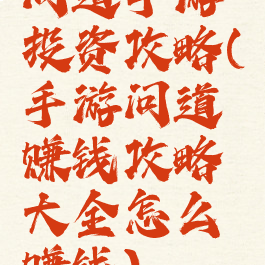 问道手游
投资攻略(
手游问道
赚钱攻略
大全怎么
赚钱)